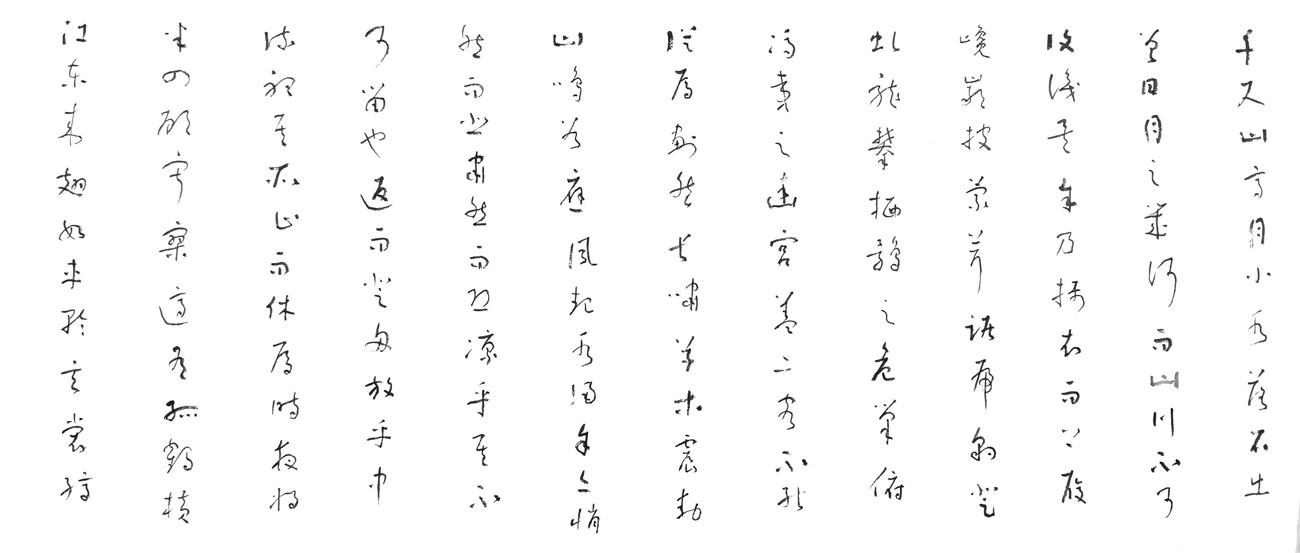 千尺山高月小水落石出
曾日月之幾何而山川不可
復識矣余乃攝衣而上履
巉巖披蒙茸踞虎豹登
虬龍攀栖鶻之危巢俯
馮夷之幽宮蓋二客不能
從焉劃然長嘯草木震動
山鳴谷應風起水涌余亦悄
然而悲肅然而恐凜乎其不
可留也返而登舟放乎中
流聽其所止而休焉時夜將
半四顧寂寥適有孤鶴橫
江東來翅如車輪玄裳縞